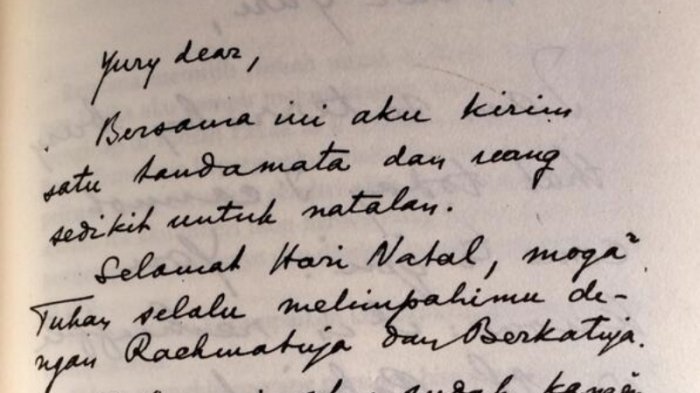 Yury dear,
Bersama ini aku kirim
satu tandamata dan uang
sedikit untuk natalan.
Selamat Hari Natal, moga²
Tuhan selalu melimpahimu de-
ngan Rachmatnja dan Berkatnja.
sudah kangen